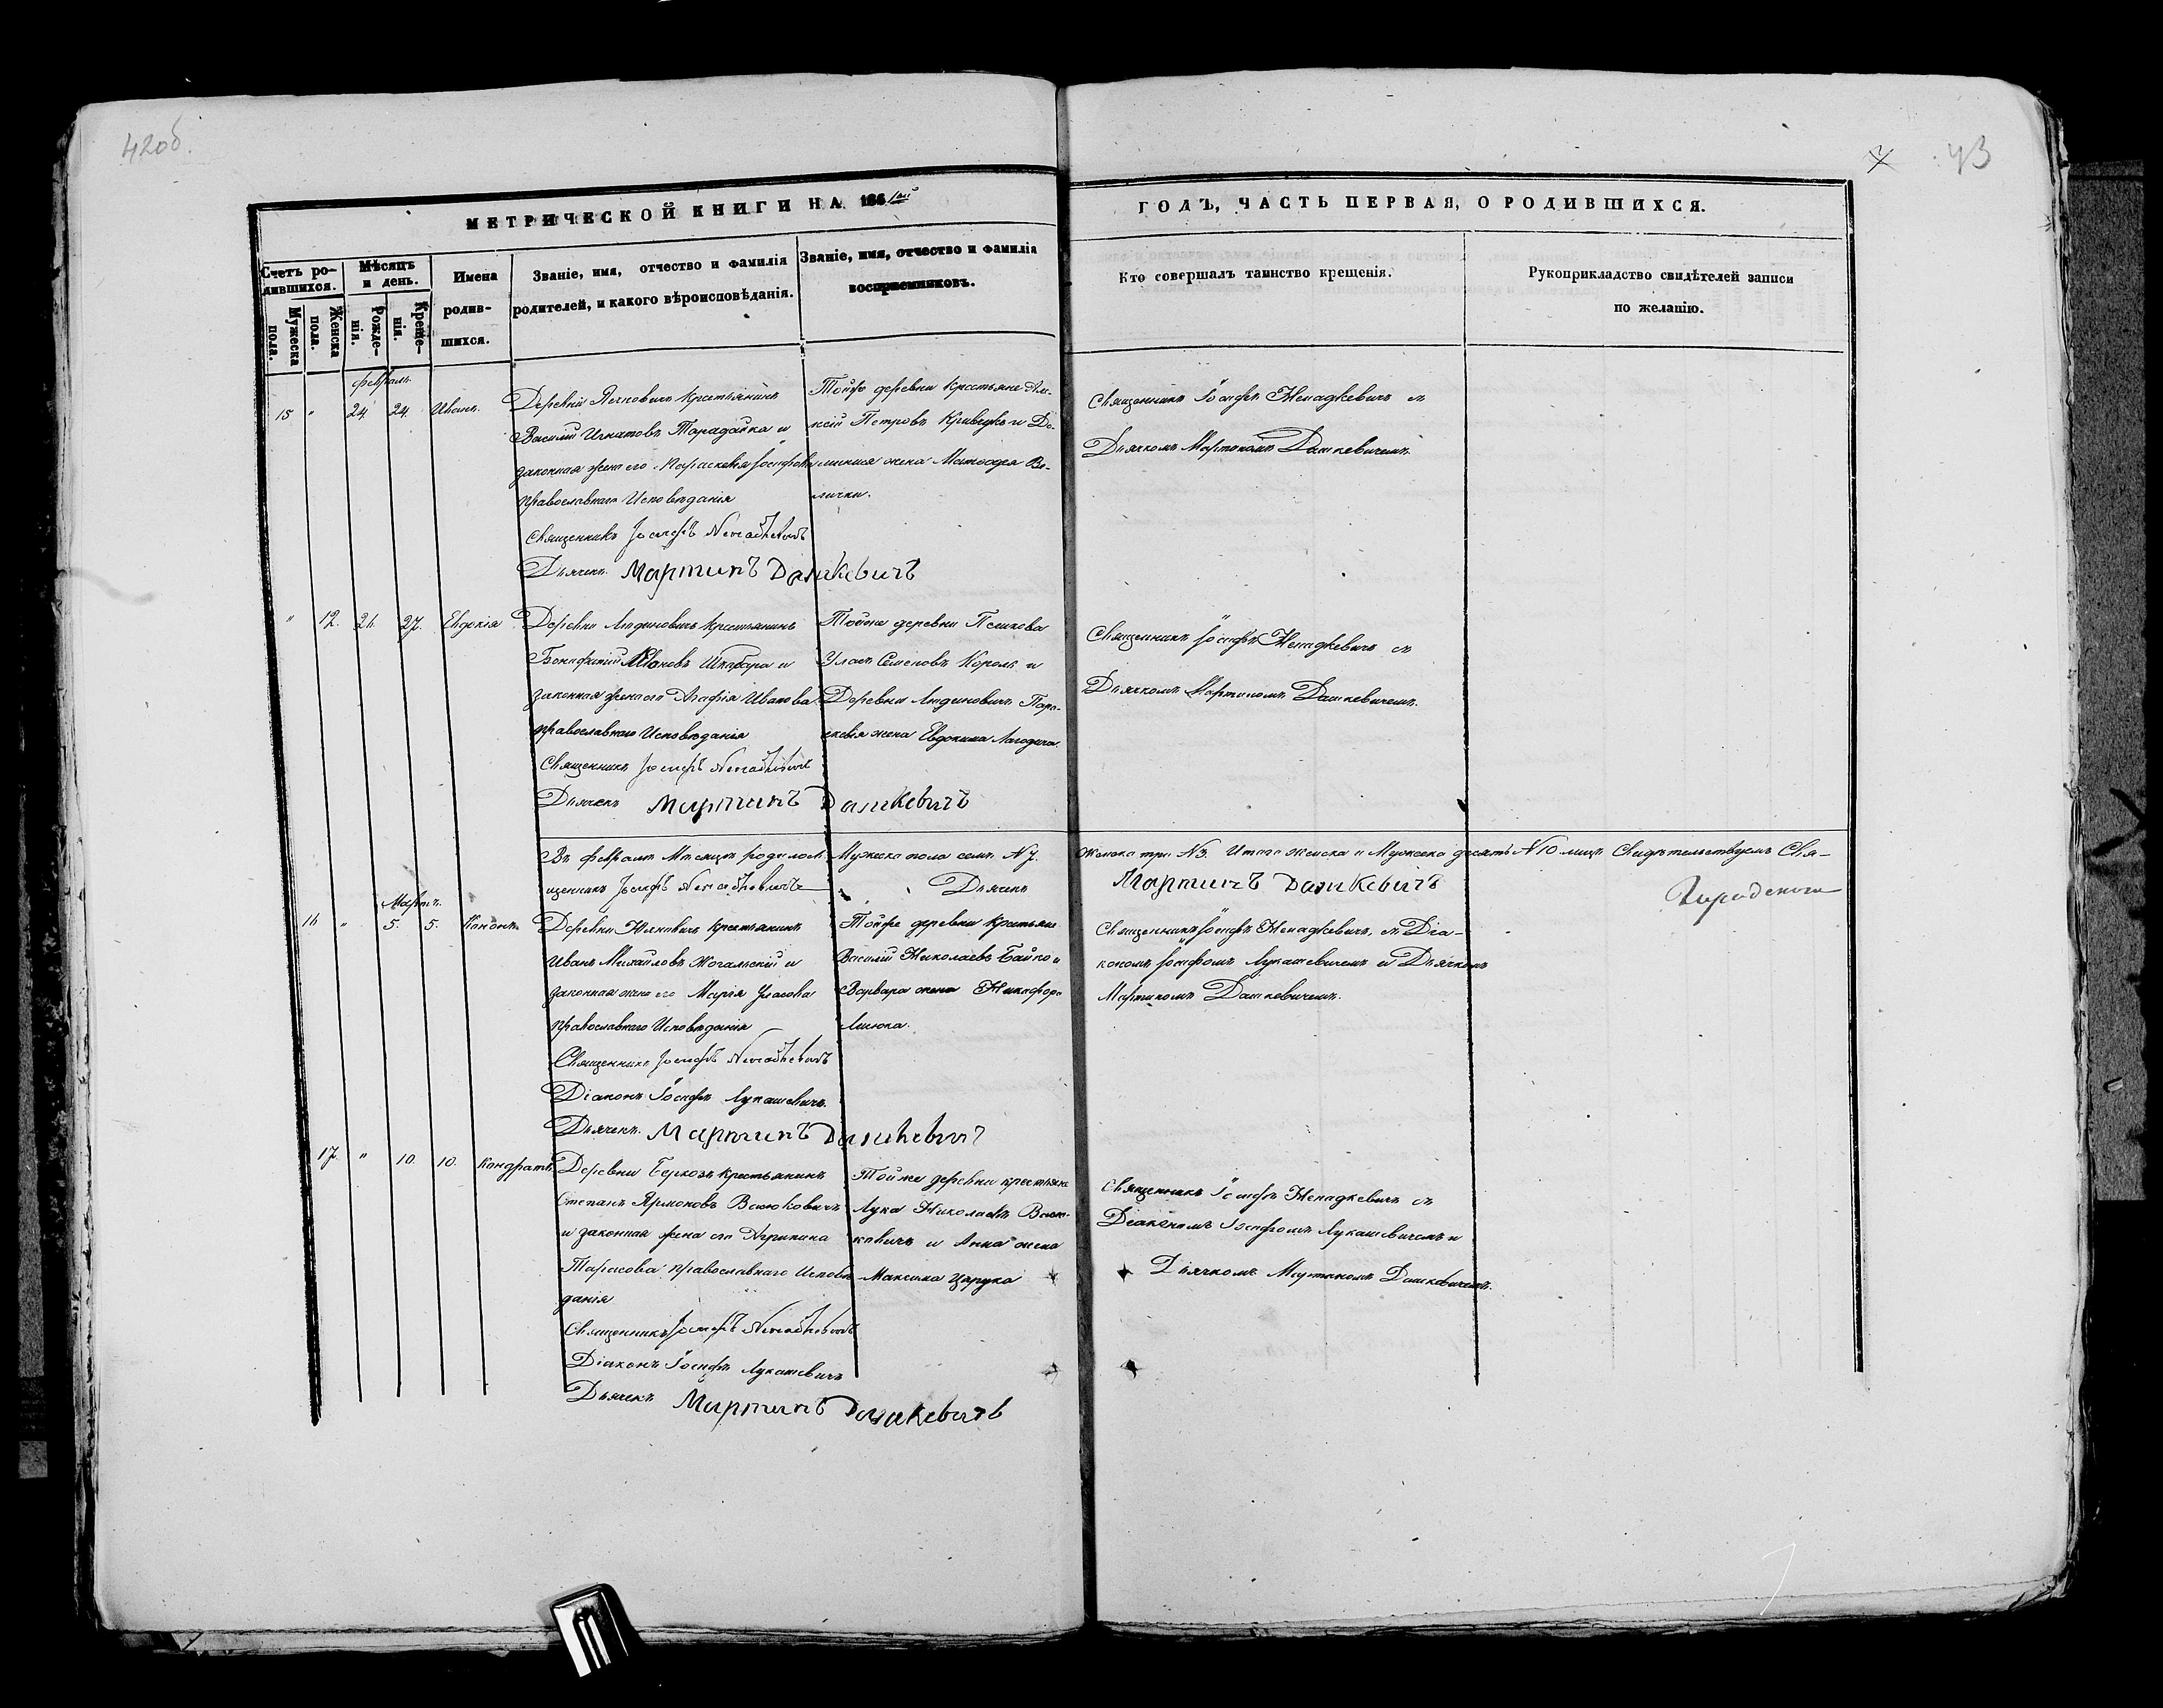 42об.
43
МЕТРИЧЕСКОЙ КНИГИ НА 1861й
ГОДЪ, ЧАСТЬ ПЕРВАЯ, О РОДИВШИХСЯ.
Счетъ ро-
дившихся.
Мужеска
пола.
Женска
пола.
Мѣсяцъ
и день.
Рожде-
нія.
Креще-
нія.
Имена
родив-
шихся.
Званіе, имя, отчество и фамилія
родителей, и какого вѣроисповѣданія.
Званіе, имя, отчество и фамилія
воспріемниковъ.
Кто совершалъ таинство крещенія.
Рукоприкладство свидѣтелей записи
по желанію.
февраль
15 " 24 24 Иванъ.
Деревни крестьянинъ
Василій Игнатовъ Тарадайка и
законная жена его Параскевія Іосифова
православнаго Исповѣданія
Священникъ Іосифъ Ненадкевичъ
Дьячекъ Мартинъ Дашкевичъ
Тойже деревни крестьяне Але-
ксій Петровъ и До-
жена Ве-
лички.
Священникъ Іосифъ Ненадкевичъ съ
Дьячкомъ Мартиномъ Дашкевичемъ.
" 12. 26. 27. Евдокія
Деревни Людиновичъ крестьянинъ
Бонифатій Шкабара и
законная жена его Агафія Иванова
православнаго Исповѣданія
Священникъ Іосифъ Ненадкевичъ
Дьячекъ Мартинъ Дашкевичъ
деревни
Уласъ Семеновъ Король и
Деревни Людиновичъ Пара-
скевія жена Евдокима
Священникъ Іосифъ Ненадкевичъ съ
Дьячкомъ Мартиномъ Дашкевичемъ.
Въ февралѣ Мѣсяцѣ родилось Мужеска пола семь №7. Женска три №3. Итого женска и Мужеска десять №10 лицъ Свидѣтельствуемъ Свя-
щенникъ Іосифъ Ненадкевичъ Дьячекъ Мартинъ Дашкевичъ
Мартъ.
16 " 5. 5. Кононъ
Деревни крестьянинъ
Иванъ Михайловъ Жогальскій и
законная жена его Марія Уласова
православнаго Исповѣданія
Священникъ Іосифъ Ненадкевичъ
Діаконъ Іосифъ Лукашевичъ.
Дьячекъ. Мартинъ Дашкевичъ
Тойже деревни крестьяне
Василій Николаевъ Байко и
Варвара жена Никифора
Священникъ Іосифъ Ненадкевичъ, съ Діа-
кономъ Іосифомъ Лукашевичемъ и Дьячкомъ
Мартиномъ Дашкевичемъ.
17. " 10. 10. Кондратъ
Деревни Бережа крестьянинъ
Степанъ Ярмоновъ Васюковичъ
и законная жена его Агрипина
Тарасова православнаго Исповѣ-
данія
Священникъ Іосифъ Ненадкевичъ
Діаконъ Іосифъ Лукашевичъ
Дьячекъ Мартинъ Дашкевичъ
Той же деревни крестьяне
Лука Николаевъ Васю-
ковичъ и Анна жена
Максима Царука
Священникъ Іосифъ Ненадкевичъ съ
Діакономъ Іосифомъ Лукашевичемъ и
Дьячкомъ Мартиномъ Дашкевичемъ.